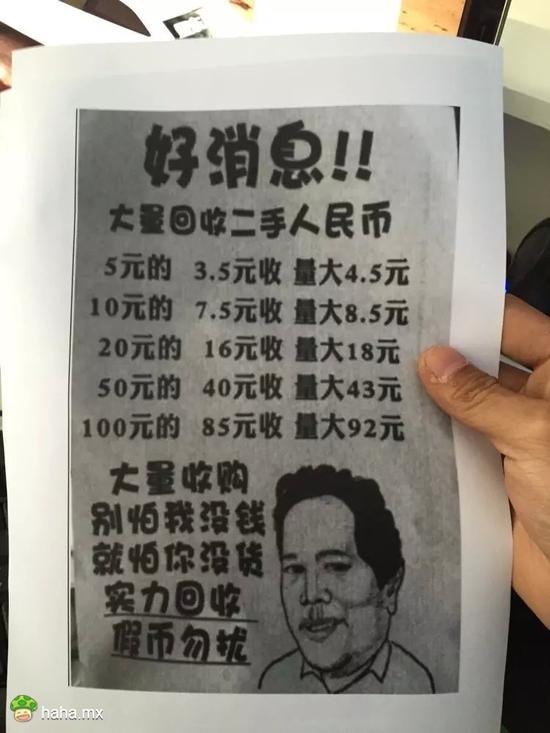 好消息!!
大量回收二手人民币
5元的 3.5元收 量大4.5元
10元的 7.5元收 量大8.5元
20元的 16元收 量大18元
50元的 40元收 量大43元
100元的 85元收 量大92元
大量收购
别怕我没钱
就怕你没货
实力回收
假币勿扰
haha.mx